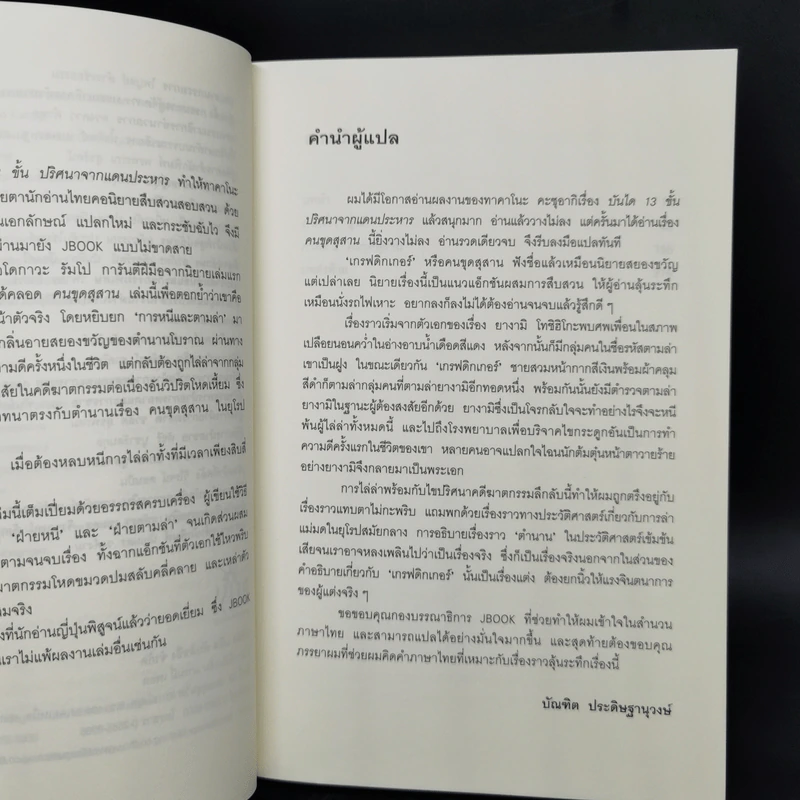 ขั้น ปริศนาจากแดนประหาร ทำให้ทาคาโนะ
ยตานักอ่านไทยคอนิยายสืบสวนสอบสวน ด้วย
นเอกลักษณ์ แปลกใหม่ และกระชับฉับไว จึงมี
ผ่านมายัง JBOOK แบบไม่ขาดสาย
อโดกาวะ รัมโป การันตีฝีมือจากนิยายเล่มแรก
ด้คลอด คนขุดสุสาน เล่มนี้เพื่อตอกย้ำว่าเขาคือ
ตัวจริง โดยหยิบยก 'การหนีและตามล่า' มา
กลิ่นอายสยองขวัญของตำนานโบราณ ผ่านทาง
ามดีครั้งหนึ่งในชีวิต แต่กลับต้องถูกไล่ล่าจากกลุ่ม
สัยในคดีฆาตกรรมต่อเนื่องอันวิปริตโหดเหี้ยม ซึ่ง
ทนาตรงกับตำนานเรื่อง คนขุดสุสาน ในยุโรป
เมื่อต้องหลบหนีการไล่ล่าทั้งที่มีเวลาเพียงสิบสี่
ล่มนี้เต็มเปี่ยมด้วยอรรถรสครบเครื่อง ผู้เขียนใช้วิธี
'ฝ่ายหนี' และ 'ฝ่ายตามล่า' จนเกิดส่วนผสม
ตามจนจบเรื่อง ทั้งฉากแอ็กชันที่ตัวเอกใช้ไหวพริบ
าตกรรมโหดขมวดปมสลับคลี่คลาย และเหล่าตัว
มจริง
งที่นักอ่านญี่ปุ่นพิสูจน์แล้วว่ายอดเยี่ยม ซึ่ง JBOOK
นเราไม่แพ้ผลงานเล่มอื่นเช่นกัน
คำนำผู้แปล
ผมได้มีโอกาสอ่านผลงานของทาคาโนะ คะซุอากิเรื่อง บันได 13 ขั้น
ปริศนาจากแดนประหาร แล้วสนุกมาก อ่านแล้ววางไม่ลง แต่ครั้นมาได้อ่านเรื่อง
คนขุดสุสาน นี้ยิ่งวางไม่ลง อ่านรวดเดียวจบ จึงรีบลงมือแปลทันที
'เกรฟดิกเกอร์' หรือคนขุดสุสาน ฟังชื่อแล้วเหมือนนิยายสยองขวัญ
แต่เปล่าเลย นิยายเรื่องนี้เป็นแนวแอ็กชันผสมการสืบสวน ให้ผู้อ่านลุ้นระทึก
เหมือนนั่งรถไฟเหาะ อยากลงก็ลงไม่ได้ต้องอ่านจนจบแล้วรู้สึกดี ๆ
เรื่องราวเริ่มจากตัวเอกของเรื่อง ยางามิ โทชิฮิโกะพบศพเพื่อนในสภาพ
เปลือยนอนคว่ำในอ่างอาบน้ำเดือดสีแดง หลังจากนั้นก็มีกลุ่มคนในชื่อรหัสตามล่า
เขาเป็นฝูง ในขณะเดียวกัน 'เกรฟดิกเกอร์' ชายสวมหน้ากากสีเงินพร้อมผ้าคลุม
สีดำก็ตามล่ากลุ่มคนที่ตามล่ายางามิอีกทอดหนึ่ง พร้อมกันนั้นยังมีตำรวจตามล่า
ยางามิในฐานะผู้ต้องสงสัยอีกด้วย ยางามิซึ่งเป็นโจรกลับใจจะทำอย่างไรจึงจะหนี
พ้นผู้ไล่ล่าทั้งหมดนี้ และไปถึงโรงพยาบาลเพื่อบริจาคไขกระดูกอันเป็นการทำ
ความดีครั้งแรกในชีวิตของเขา หลายคนอาจแปลกใจไฉนนักต้มตุ๋นหน้าตาวายร้าย
อย่างยางามิจึงกลายมาเป็นพระเอก
การไล่ล่าพร้อมกับไขปริศนาคดีฆาตกรรมลึกลับนี้ทำให้ผมถูกตรึงอยู่กับ
เรื่องราวแทบตาไม่กะพริบ แถมพกด้วยเรื่องราวทางประวัติศาสตร์เกี่ยวกับการล่า
แม่มดในยุโรปสมัยกลาง การอธิบายเรื่องราว 'ตำนาน' ในประวัติศาสตร์เข้มข้น
เสียจนเราอาจหลงเพลินไปว่าเป็นเรื่องจริง ซึ่งก็เป็นเรื่องจริงนอกจากในส่วนของ
คำอธิบายเกี่ยวกับ 'เกรฟดิกเกอร์' นั้นเป็นเรื่องแต่ง ต้องยกนิ้วให้แรงจินตนาการ
ของผู้แต่งจริง ๆ
ขอขอบคุณกองบรรณาธิการ JBOOK ที่ช่วยทำให้ผมเข้าใจในสำนวน
ภาษาไทย และสามารถแปลได้อย่างมั่นใจมากขึ้น และสุดท้ายต้องขอบคุณ
ภรรยาผมที่ช่วยผมคิดคำภาษาไทยที่เหมาะกับเรื่องราวลุ้นระทึกเรื่องนี้
บัณฑิต ประดิษฐานุวงษ์